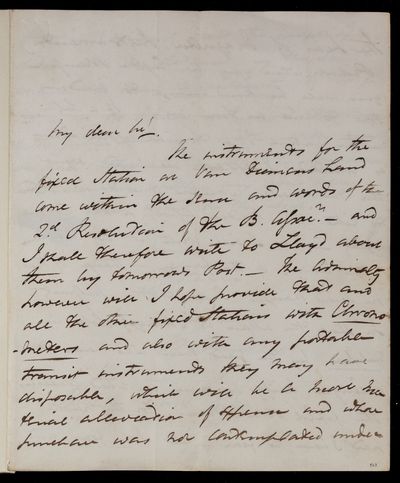 My dear Sir,
The instruments for the
fixed Station at Van Diemens Land
come within the sense and words of the
2d. Resolution of the B. Assocn. – and
I shall therefore write to Lloyd about
them by tomorrows Post – The Admiralty
however will I hope provide that and
all the other fixed Stations with Chrono
-meters and also with any portable
transit instruments they may have
disposable, which will be a more ma
terial alleviation of expense and whose
purchase was not contemplated under